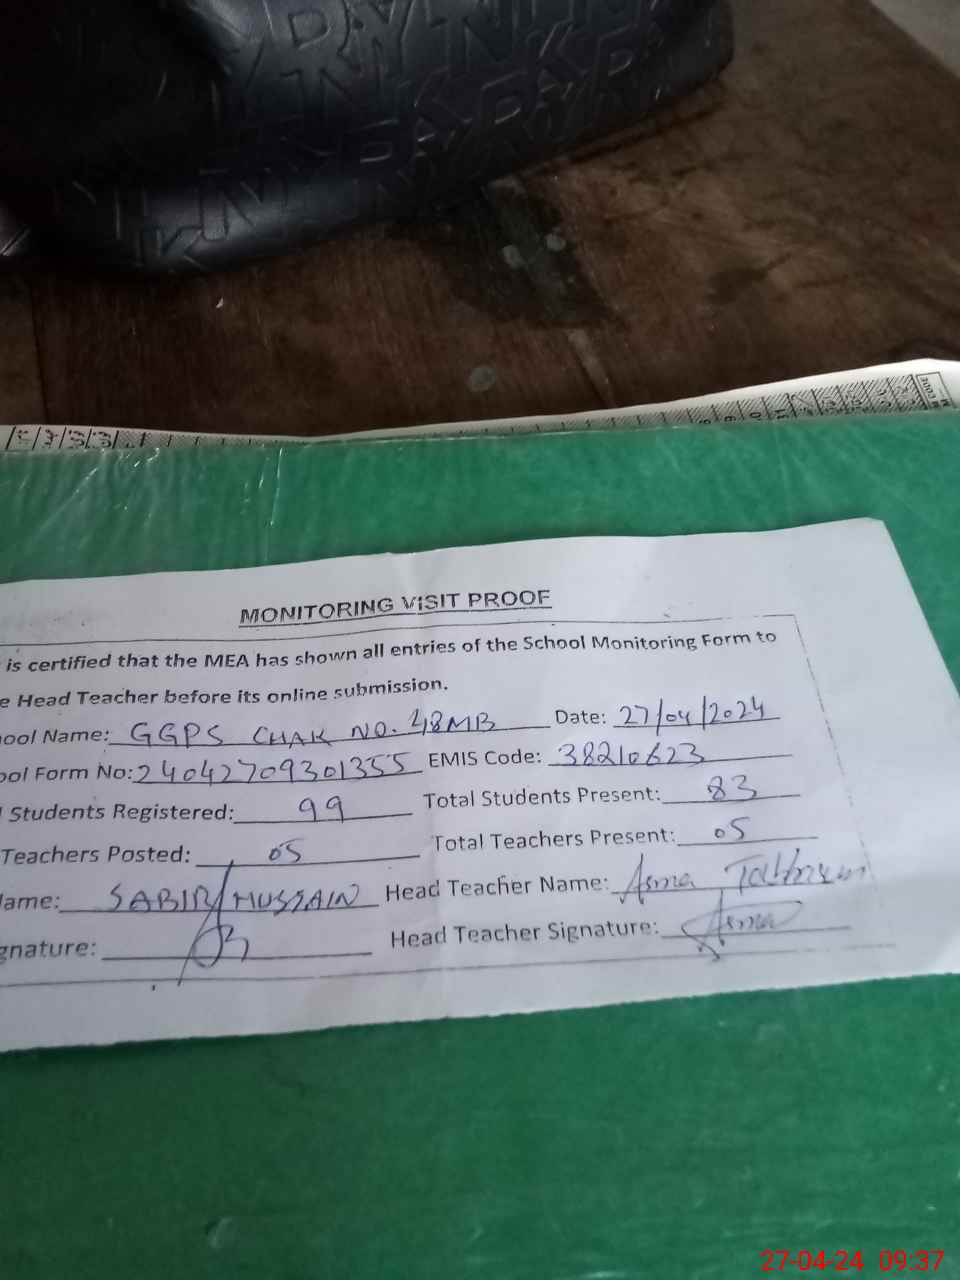 MONITORING VISIT PROOF
is certified that the MEA has shown all entries of the School Monitoring Form to
e Head Teacher before its online submission.
ool Name: GGPS CHAK NO. 48MB Date: 27/04/2024
ool Form No: 24042709301355 EMIS Code: 38210623
l Students Registered: 99 Total Students Present: 83
Teachers Posted: 05 Total Teachers Present: 05
Name: SABIR HUSSAIN Head Teacher Name: Asma
gnature: Head Teacher Signature: Asma
27-04-24 09:37